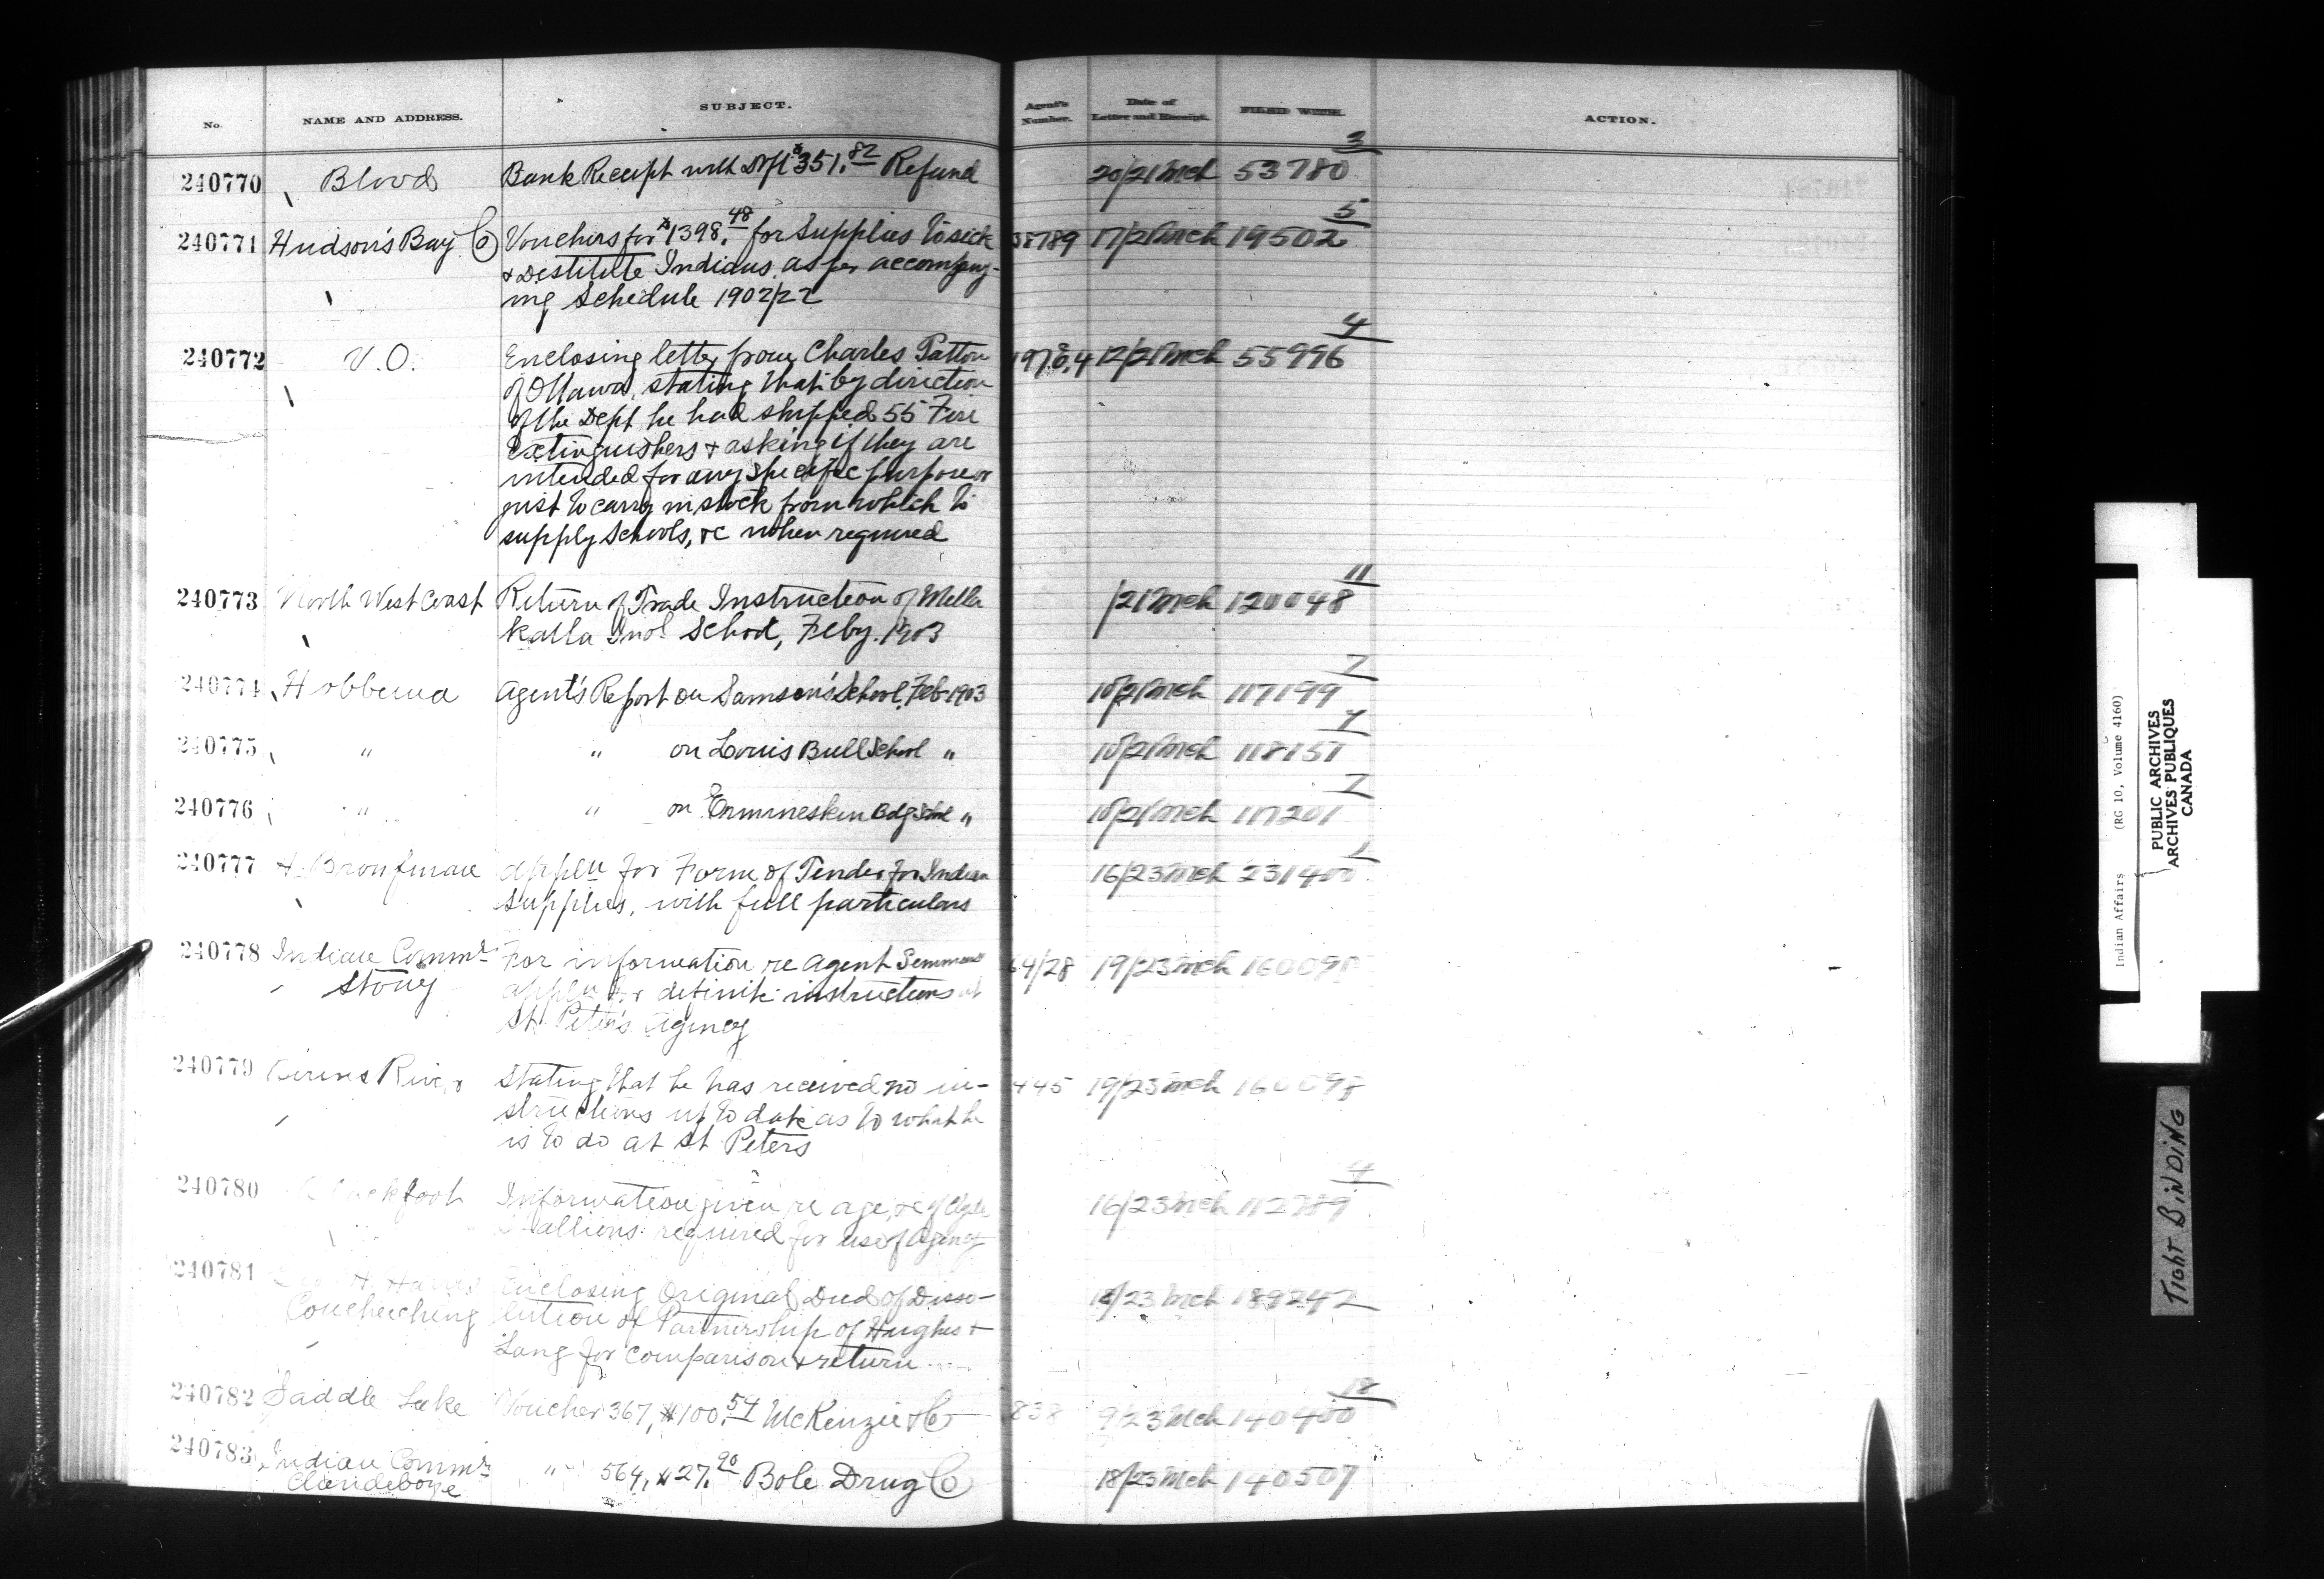 No. NAME AND ADDRESS. SUBJECT. Agent's Number. Date of Letter and Receipt. FILED WITH. ACTION.
240770 Blood Bank Receipt with Dft $351.82 Refund 20/21 Mch 53780 3
240771 Hudson's Bay Co Vouchers for $1398.48 for Supplies to sick 17/21 Mch 19502 5
& Destitute Indians as per accompany-
ing Schedule 1902/22
240772 V.O. Enclosing letter from Charles Patton 12/21 Mch 55996 4
of Ottawa, stating that by direction
of the Dept he had shipped 55 Fire
Extinguishers & asking if they are
intended for any specific purpose or
just to carry in stock from which to
supply Schools, &c when required
240773 North West Coast Return of Trade Instruction of Metla /21 Mch 120048 11
Katla Indl School, Feby. 1903
240774 Hobbema Agent's Report on Samson's School, Feb 1903 10/21 Mch 117199 7
240775 " " on Louis Bull School " 10/21 Mch 118151 7
240776 " " on Ermineskin Bdg School " 10/21 Mch 117201 7
240777 Bronfman Appln for Form of Tender for Indian 16/23 Mch 231400 1
Supplies, with full particulars
240778 Indian Commr For information re Agent 64/28 19/23 Mch
Stony appln for definite instructions at
St. Peter's Agency
240779 River Stating that he has received no in- 445 19/23 Mch
structions up to date as to what he
is to do at St Peters
240780 Blackfoot Information given re age, &c of Clyde 16/23 Mch 112789 4
Stallions required for use of Agency
240781 Enclosing Original Deed of Disso- 18/23 Mch 189242
Coucheeching lution of Partnership of Hughes &
Lang for comparison & return
240782 Saddle Lake Voucher 367, $100.54 McKenzie & Co 838 9/23 Mch 140400 18
240783 Indian Commr " 564, $27.90 Bole Drug Co 18/23 Mch 140507
Clandeboye
Indian Affairs (RG 10, Volume 4160)
PUBLIC ARCHIVES
ARCHIVES PUBLIQUES
CANADA
TIGHT BINDING